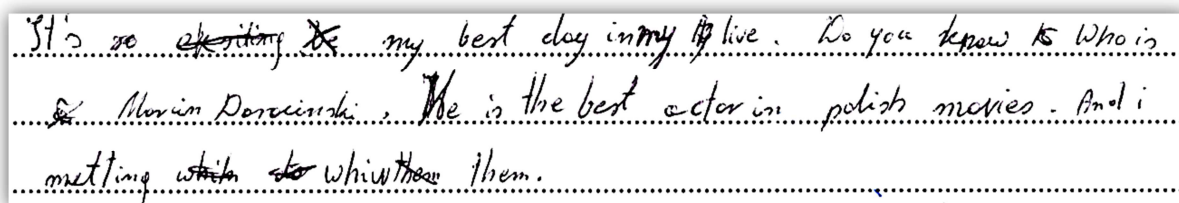 It's so my best day in my live. Do you know Who is
Marcin Dorocinski, He is the best actor in polish movies. And i
metting them.